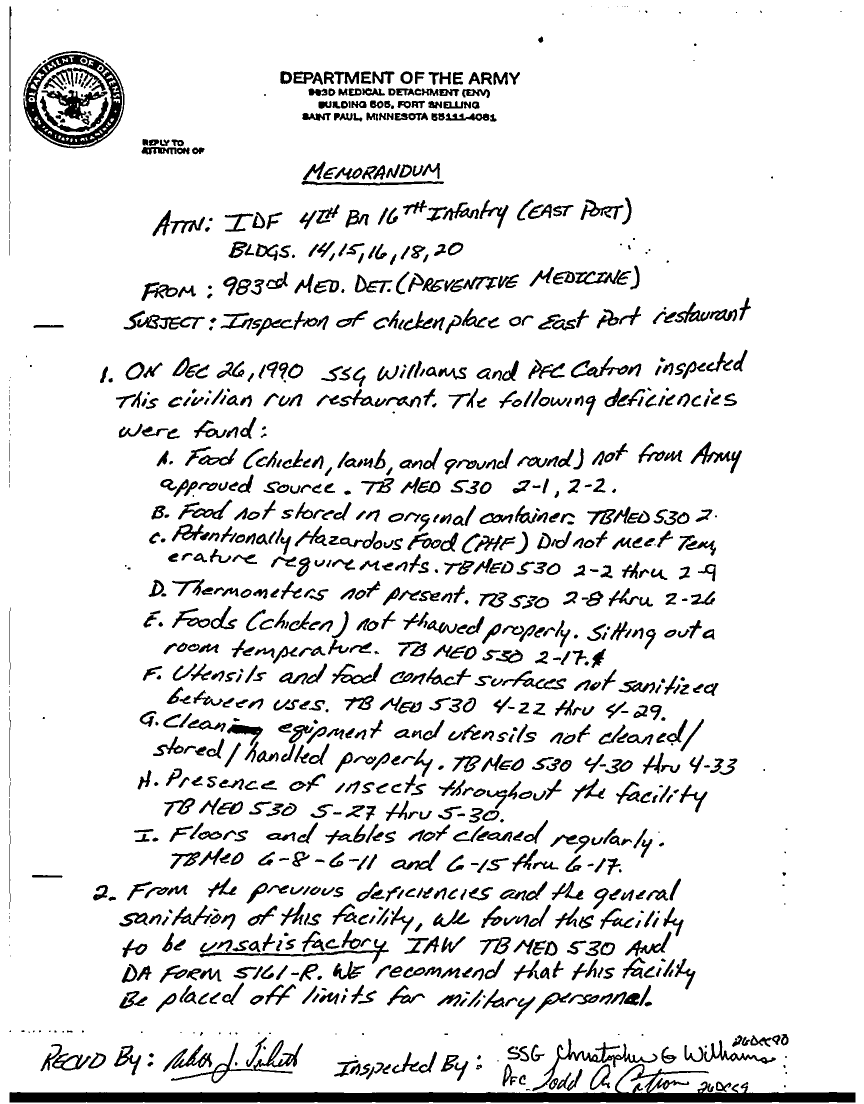 DEPARTMENT OF THE ARMY
983D MEDICAL DETACHMENT (ENV)
BUILDING 505, FORT SNELLING
SAINT PAUL, MINNESOTA 55111-4061
DEPARTMENT OF DEFENSE
REPLY TO
ATTENTION OF
MEMORANDUM
ATTN: IDF 4TH BN 16TH Infantry (EAST PORT)
BLDGS. 14,15,16,18,20
FROM: 983rd MED. DET. (PREVENTIVE MEDICINE)
SUBJECT: Inspection of chicken place or East Port restaurant
1. ON DEC 26, 1990 SSG Williams and PFC Catron inspected
This civilian run restaurant. The following deficiencies
were found:
A. Food (chicken, lamb, and ground round) not from Army
approved source. TB MED 530 2-1, 2-2.
B. Food not stored in original container. TBMED 530 2-
C. Potentionally Hazardous Food (PHF) Did not meet Tem,
erature requirements. TB MED 530 2-2 thru 2-9
D. Thermometers not present. TB 530 2-8 thru 2-26
E. Foods (chicken) not thawed properly. Sitting out a
room temperature. TB MED 530 2-17.
F. Utensils and food contact surfaces not sanitized
between uses. TB MED 530 4-22 thru 4-29.
G. Cleaning equipment and utensils not cleaned/
stored/handled properly. TB MED 530 4-30 thru 4-33
H. Presence of insects throughout the facility
TB MED 530 5-27 thru 5-30.
I. Floors and tables not cleaned regularly.
TB Med 6-8-6-11 and 6-15 thru 6-17.
2. From the previous deficiencies and the general
sanitation of this facility, we found this facility
to be unsatisfactory IAW TB MED 530 And
DA FORM 5161-R. WE recommend that this facility
Be placed off limits for military personnel.
RECVD By: J.
Inspected By: SSG Christopher G Williams 26DEC90
PFC Todd A. Catron 26DEC9